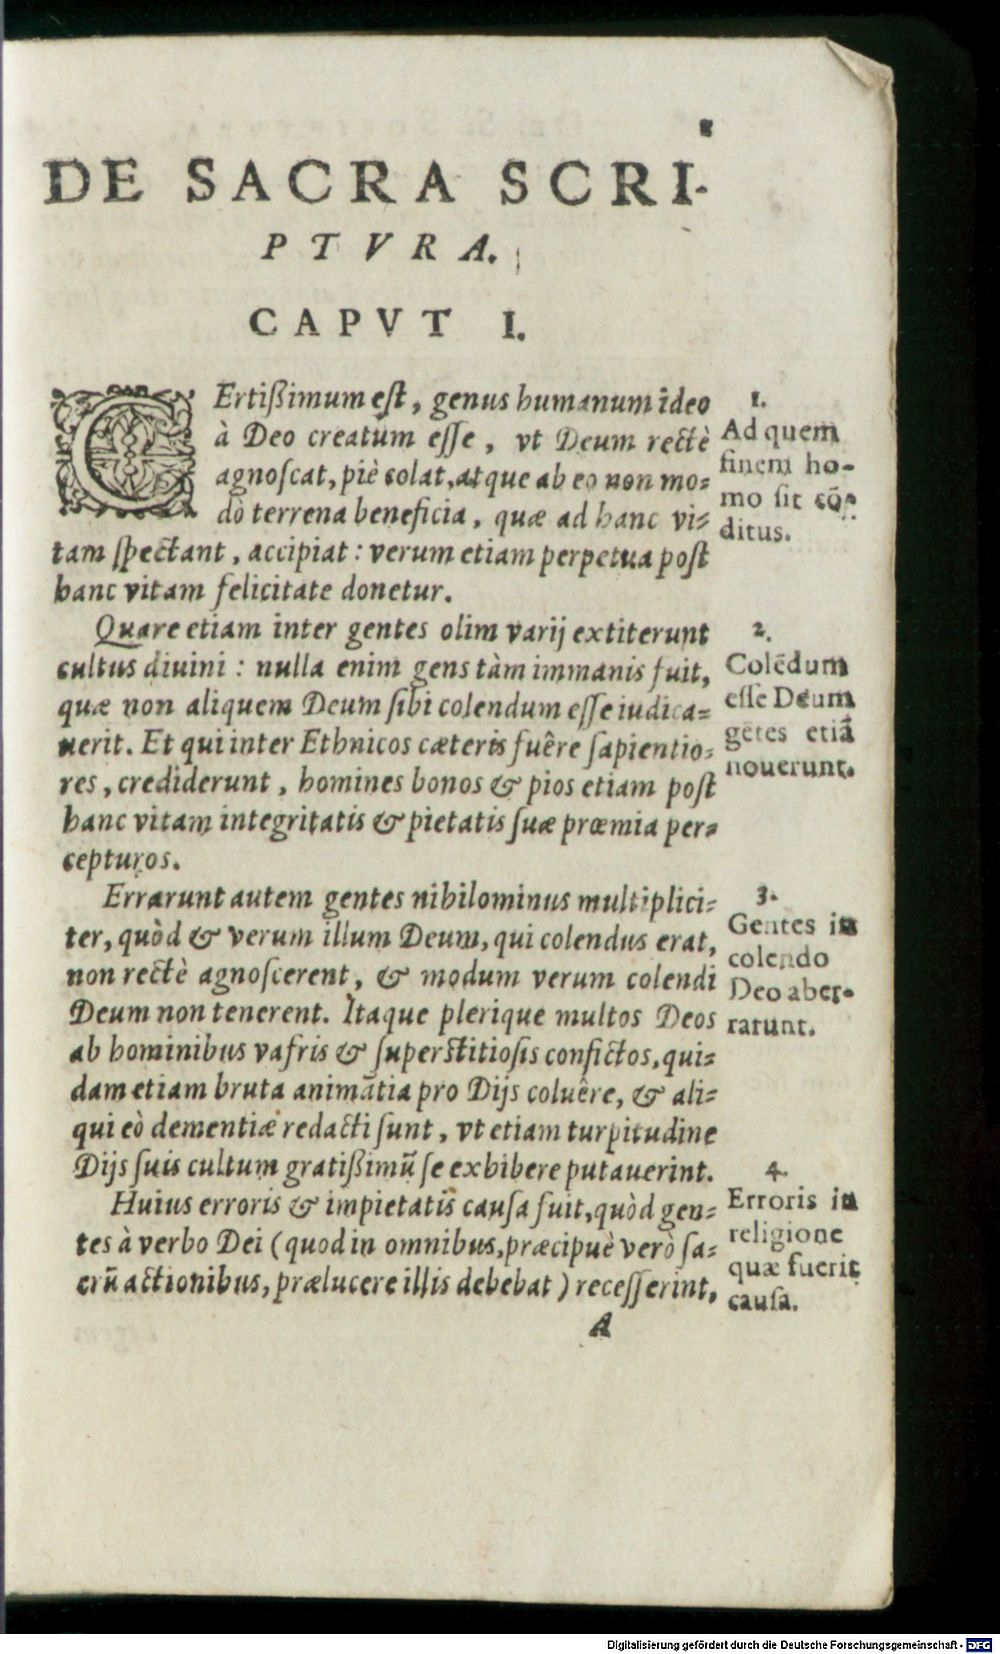 1
DE SACRA SCRI-
PTVRA.
CAPVT I.
CErtißimum est, genus humanum ideo
à Deo creatum esse, vt Deum rectè
agnoscat, piè colat, atque ab eo non mo-
dò terrena beneficia, quæ ad hanc vi-
tam spectant, accipiat: verum etiam perpetua post
hanc vitam felicitate donetur.
1.
Ad quem
finem ho-
mo sit cō-
ditus.
Quare etiam inter gentes olim varij extiterunt
cultus diuini: nulla enim gens tàm immanis fuit,
quæ non aliquem Deum sibi colendum esse iudica-
uerit. Et qui inter Ethnicos cæteris fuêre sapientio-
res, crediderunt, homines bonos & pios etiam post
hanc vitam integritatis & pietatis suæ præmia per-
cepturos.
2.
Colēdum
esse Deum
gētes etiā
nouerunt.
Errarunt autem gentes nihilominus multiplici-
ter, quòd & verum illum Deum, qui colendus erat,
non rectè agnoscerent, & modum verum colendi
Deum non tenerent. Itaque plerique multos Deos
ab hominibus vafris & superstitiosis confictos, qui-
dam etiam bruta animātia pro Dijs coluêre, & ali-
qui eò dementiæ redacti sunt, vt etiam turpitudine
Dijs suis cultum gratißimū se exhibere putauerint.
3.
Gentes in
colendo
Deo aber-
rarunt.
Huius erroris & impietatis causa fuit, quòd gen-
tes à verbo Dei (quod in omnibus, præcipuè verò sa-
crū actionibus, prælucere illis debebat) recesserint,
4.
Erroris in
religione
quæ fuerit
causa.
A
Digitalisierung gefördert durch die Deutsche Forschungsgemeinschaft - DFG